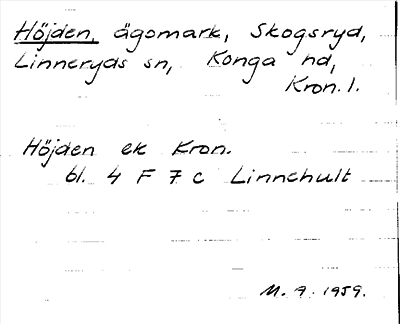 Höjden, ägomark, Skogsryd,
Linneryds sn, Konga hd,
Kron. l.
Höjden ek Kron.
bl. 4 F 7 c Linnehult
M. A. 1959.